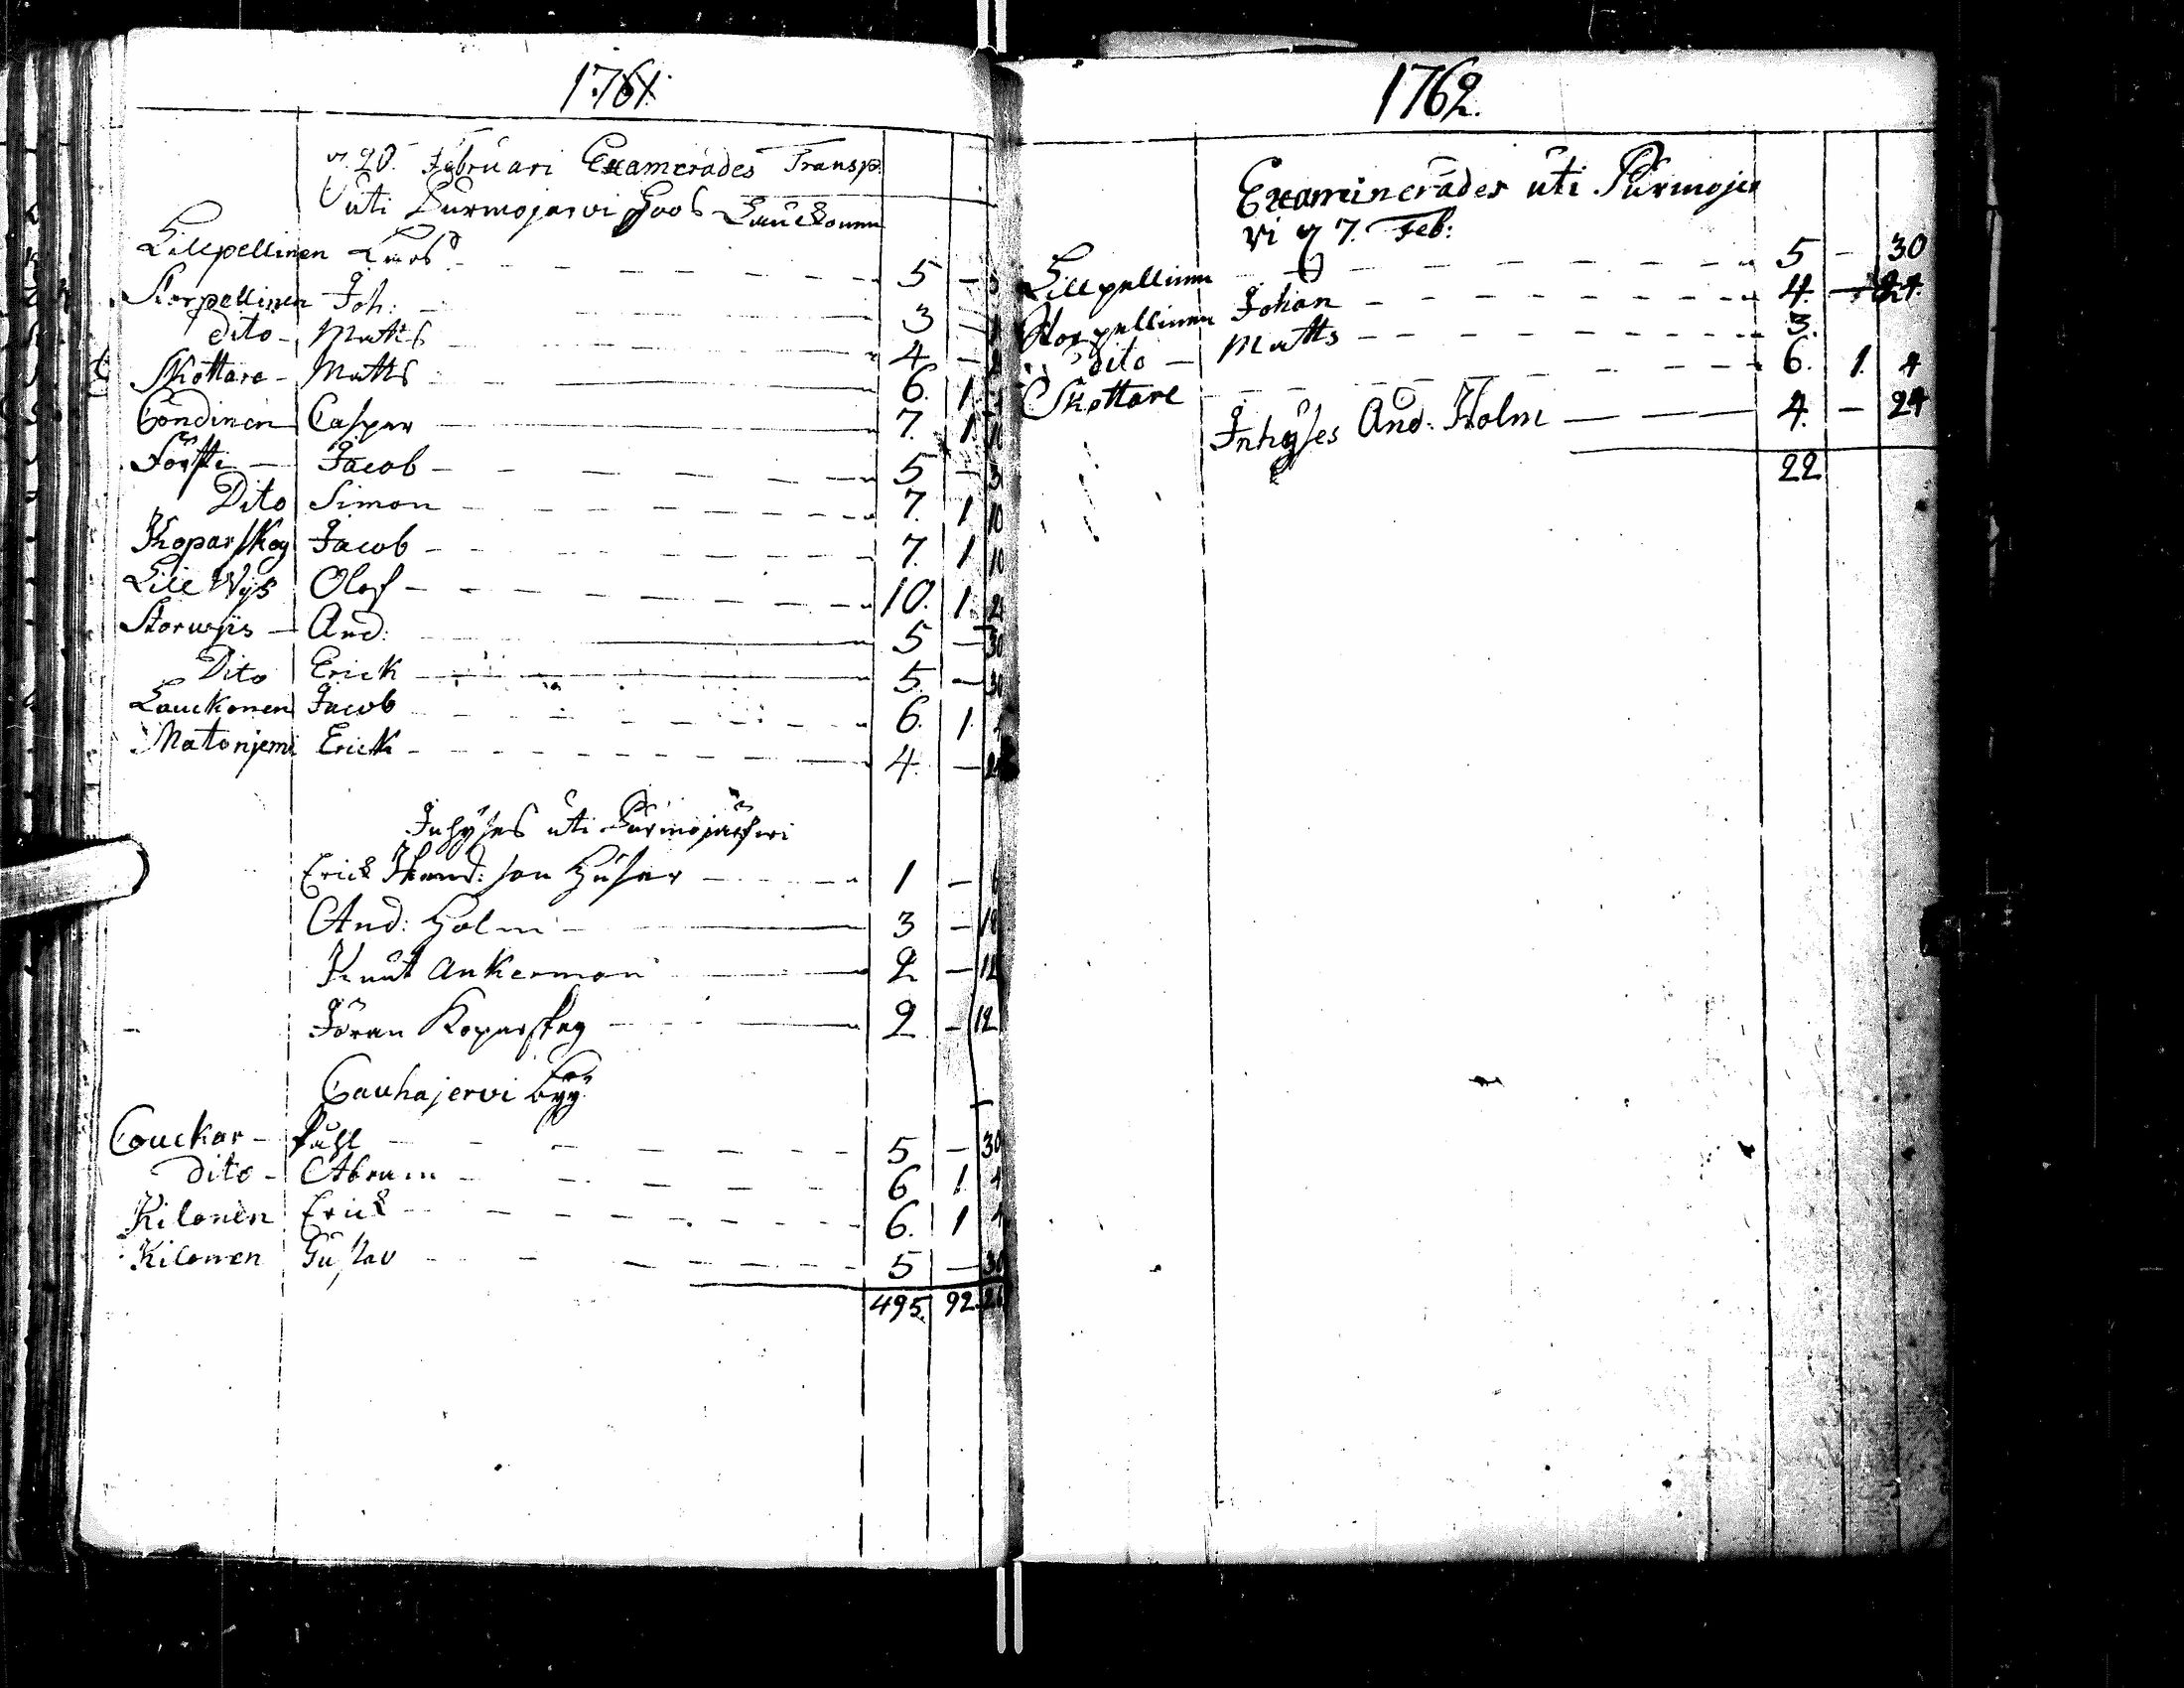 1761.
20. Februari Examerades Transp.
uti Purmojarvi hoos Lauckonen
Lillpellinen Lars 5 –
Storpellinen Joh: 3 –
dito Matts 4 –
Skottare Matts 6. 1
Condinen Casper 7. 1.
Försti Jacob 5 – 3
Dito Simon 7. 1 10
Koparskog Jacob 7. 1 10
Lill Wijs Olof 10. 1.
Storwijs And: 5 – 30
Dito Erick 5. – 30
Lauckonen Jacob 6. 1.
Matonjemi Erick 4. –
Inhyses uti Purmojärfwi
Erick And: son Huser 1 – 6
And: Holm 3 – 18
Knut Ankerman 2 – 12
Jöran Koparskog 2 – 12
Cauhajervi byy
Couckar Puhl 5 – 30
dito Abram 6 1. 4
Kilonen Erick 6. 1 4
Kilonen Gustav 5 – 30
495. 92. 26
1762.
Examinerades uti Purmojer
vi 7. Feb:
Lillpellinen 5 – 30
Storpellinen Johan 4. – 24.
dito Matts 3.
Skottare 6. 1. 4
Inhyses And: Holm 4. – 24
22